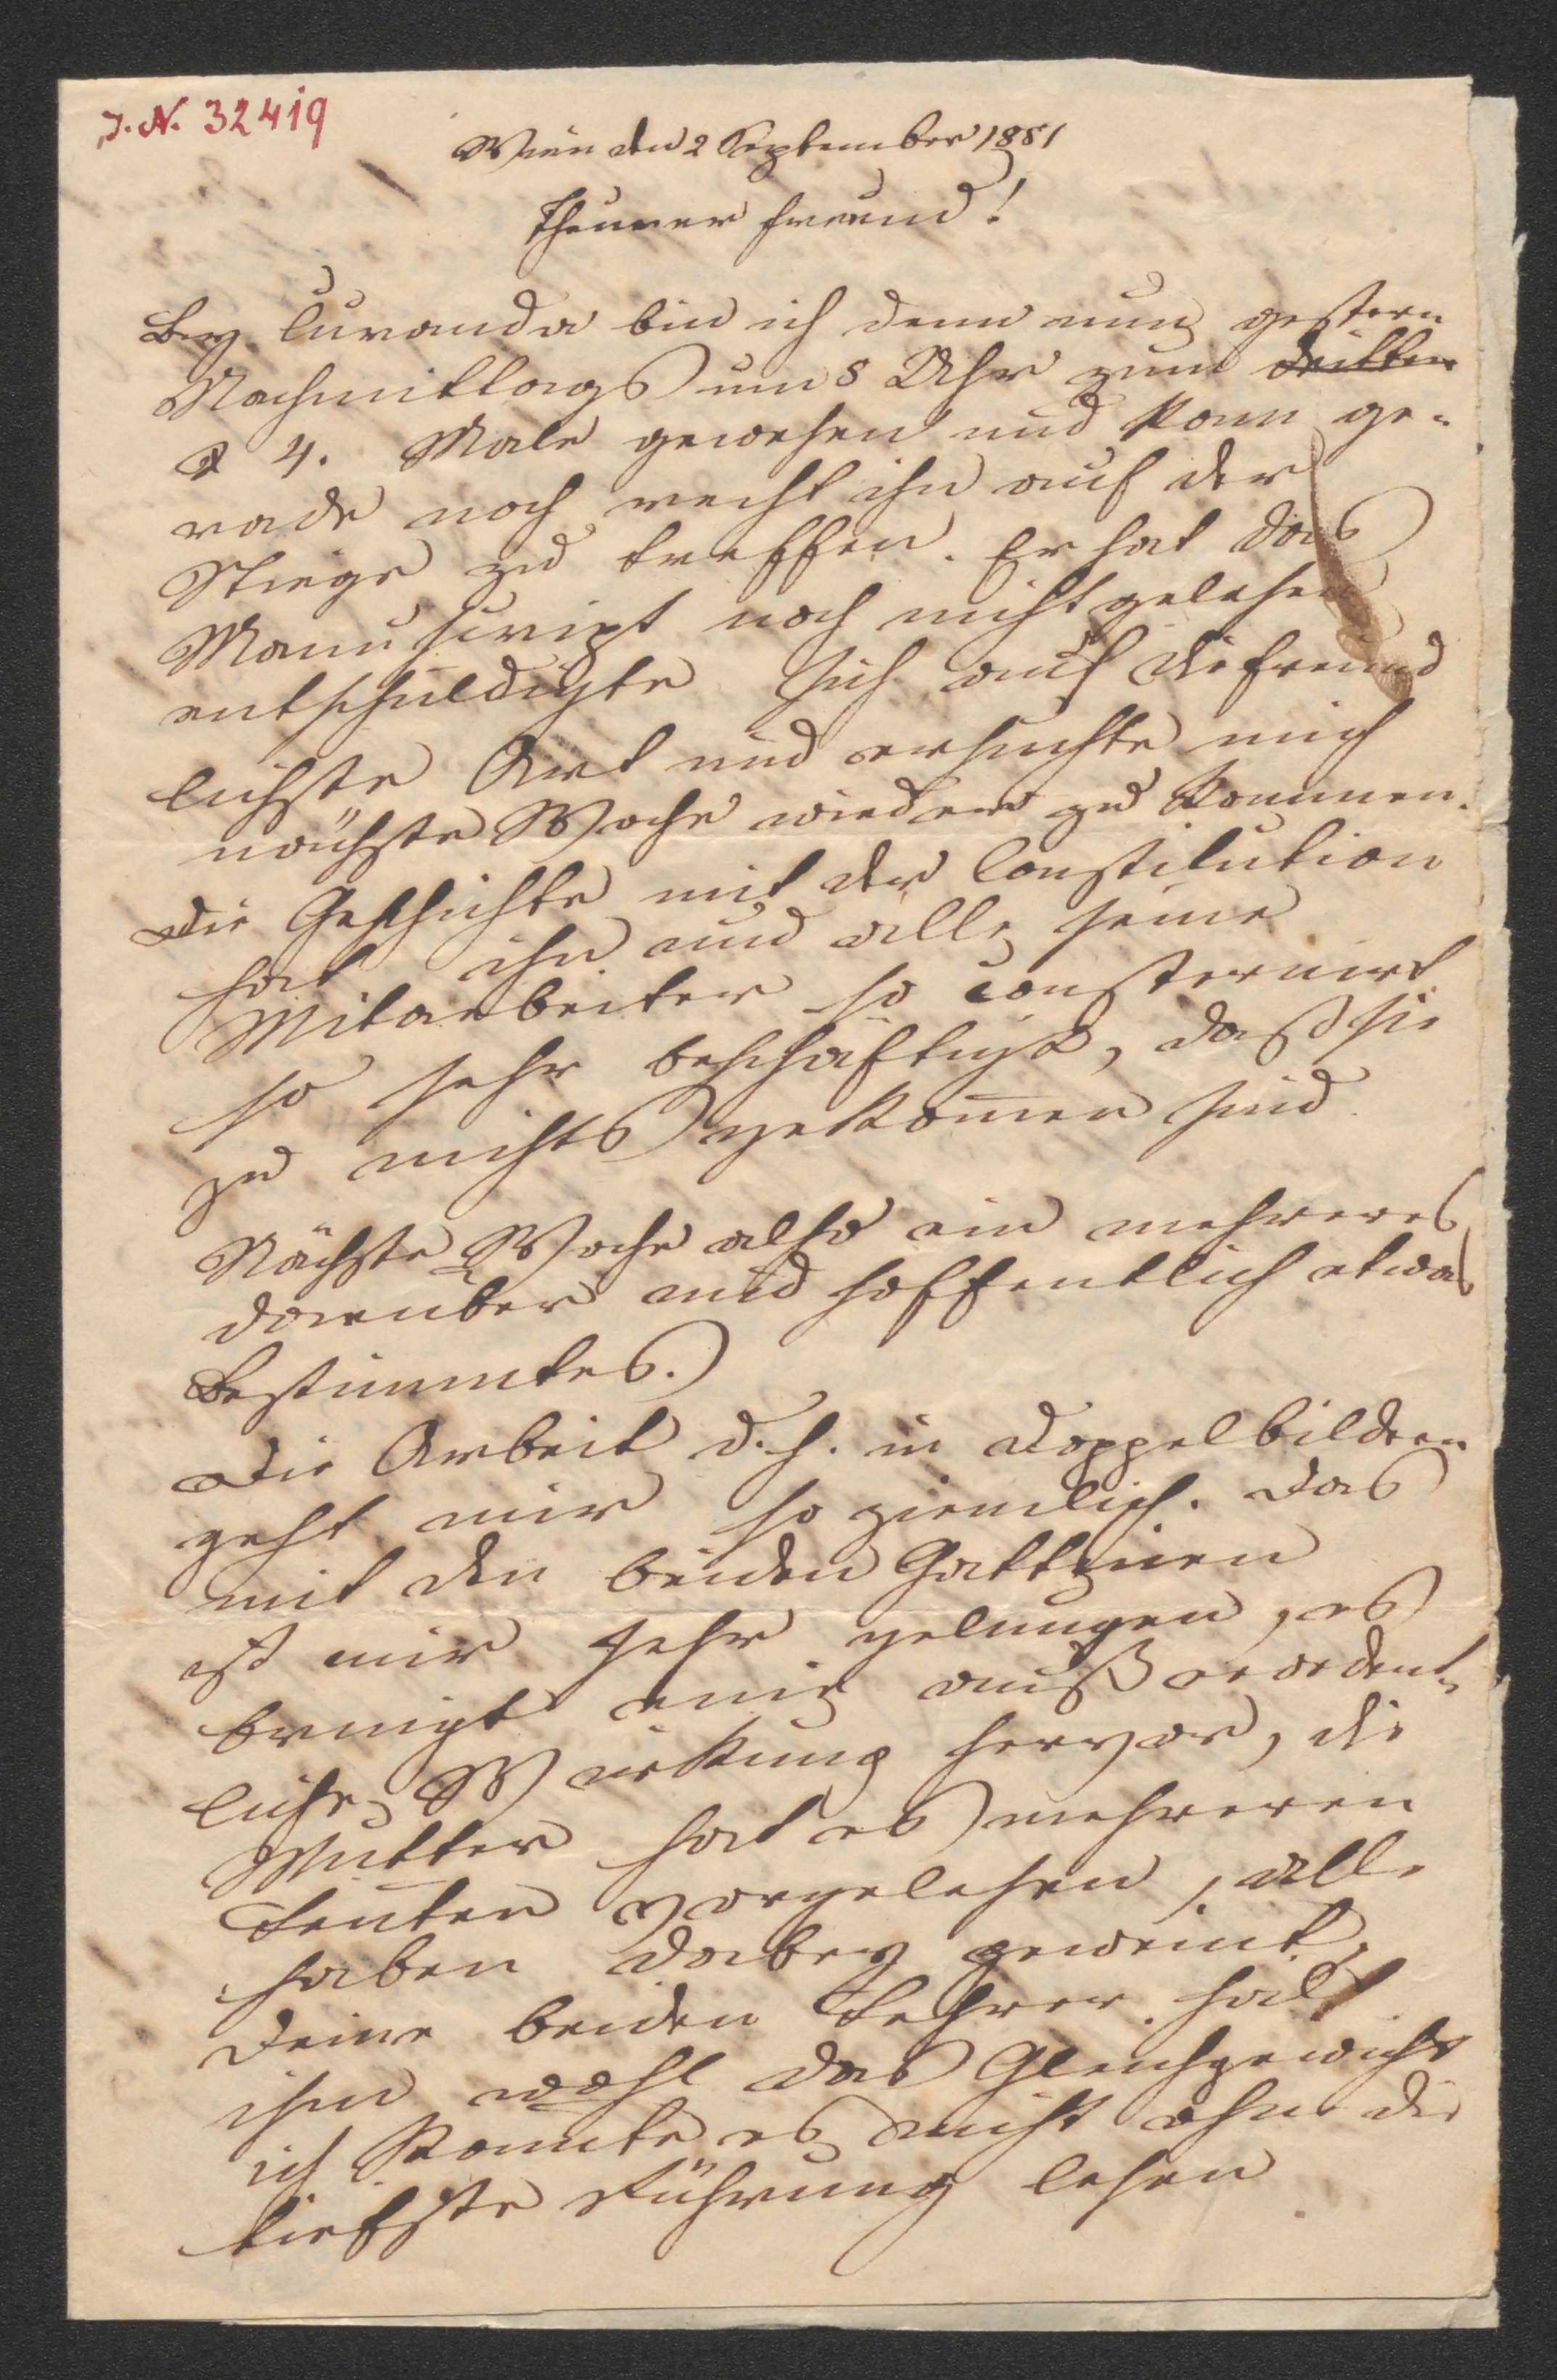 J. N. 32419
Wien den 2 September 1881
Theurer Freund!
Bey Curanda bin ich denn nun gestern
Nachmittags um 5 Uhr zum dritten
4. Male gewesen und kam ge-
rade noch recht ihn auf der
Stiege zu treffen. Er hat das
Manuscript noch nicht gelesen
entschuldigte sich auf die freund
lichste Art und ersuchte mich
nächste Woche wieder zu kommen.
Die Geschichte mit der Constitution
hat ihn und alle seine
Mitarbeiter so consternirt
so sehr beschäftigt, daß sie
zu nichts gekom̄en sind
Nächste Woche also ein mehreres
darüber und hoffentlich etwas
Bestimmtes.
Die Arbeit d. h. in Doppelbildern
geht mir so ziemlich. Das
mit den beiden Gattinen
ist mir sehr gelungen, es
bringt eine außerordent-
liche Wirkung hervor, die
Mutter hat es mehreren
Leuten vorgelesen, alle
haben dabey geweint.
Deine beiden Lehrer hält
ihm wohl das Gleichgewicht
ich konnte es nicht ohne die
tiefste Rührung lesen